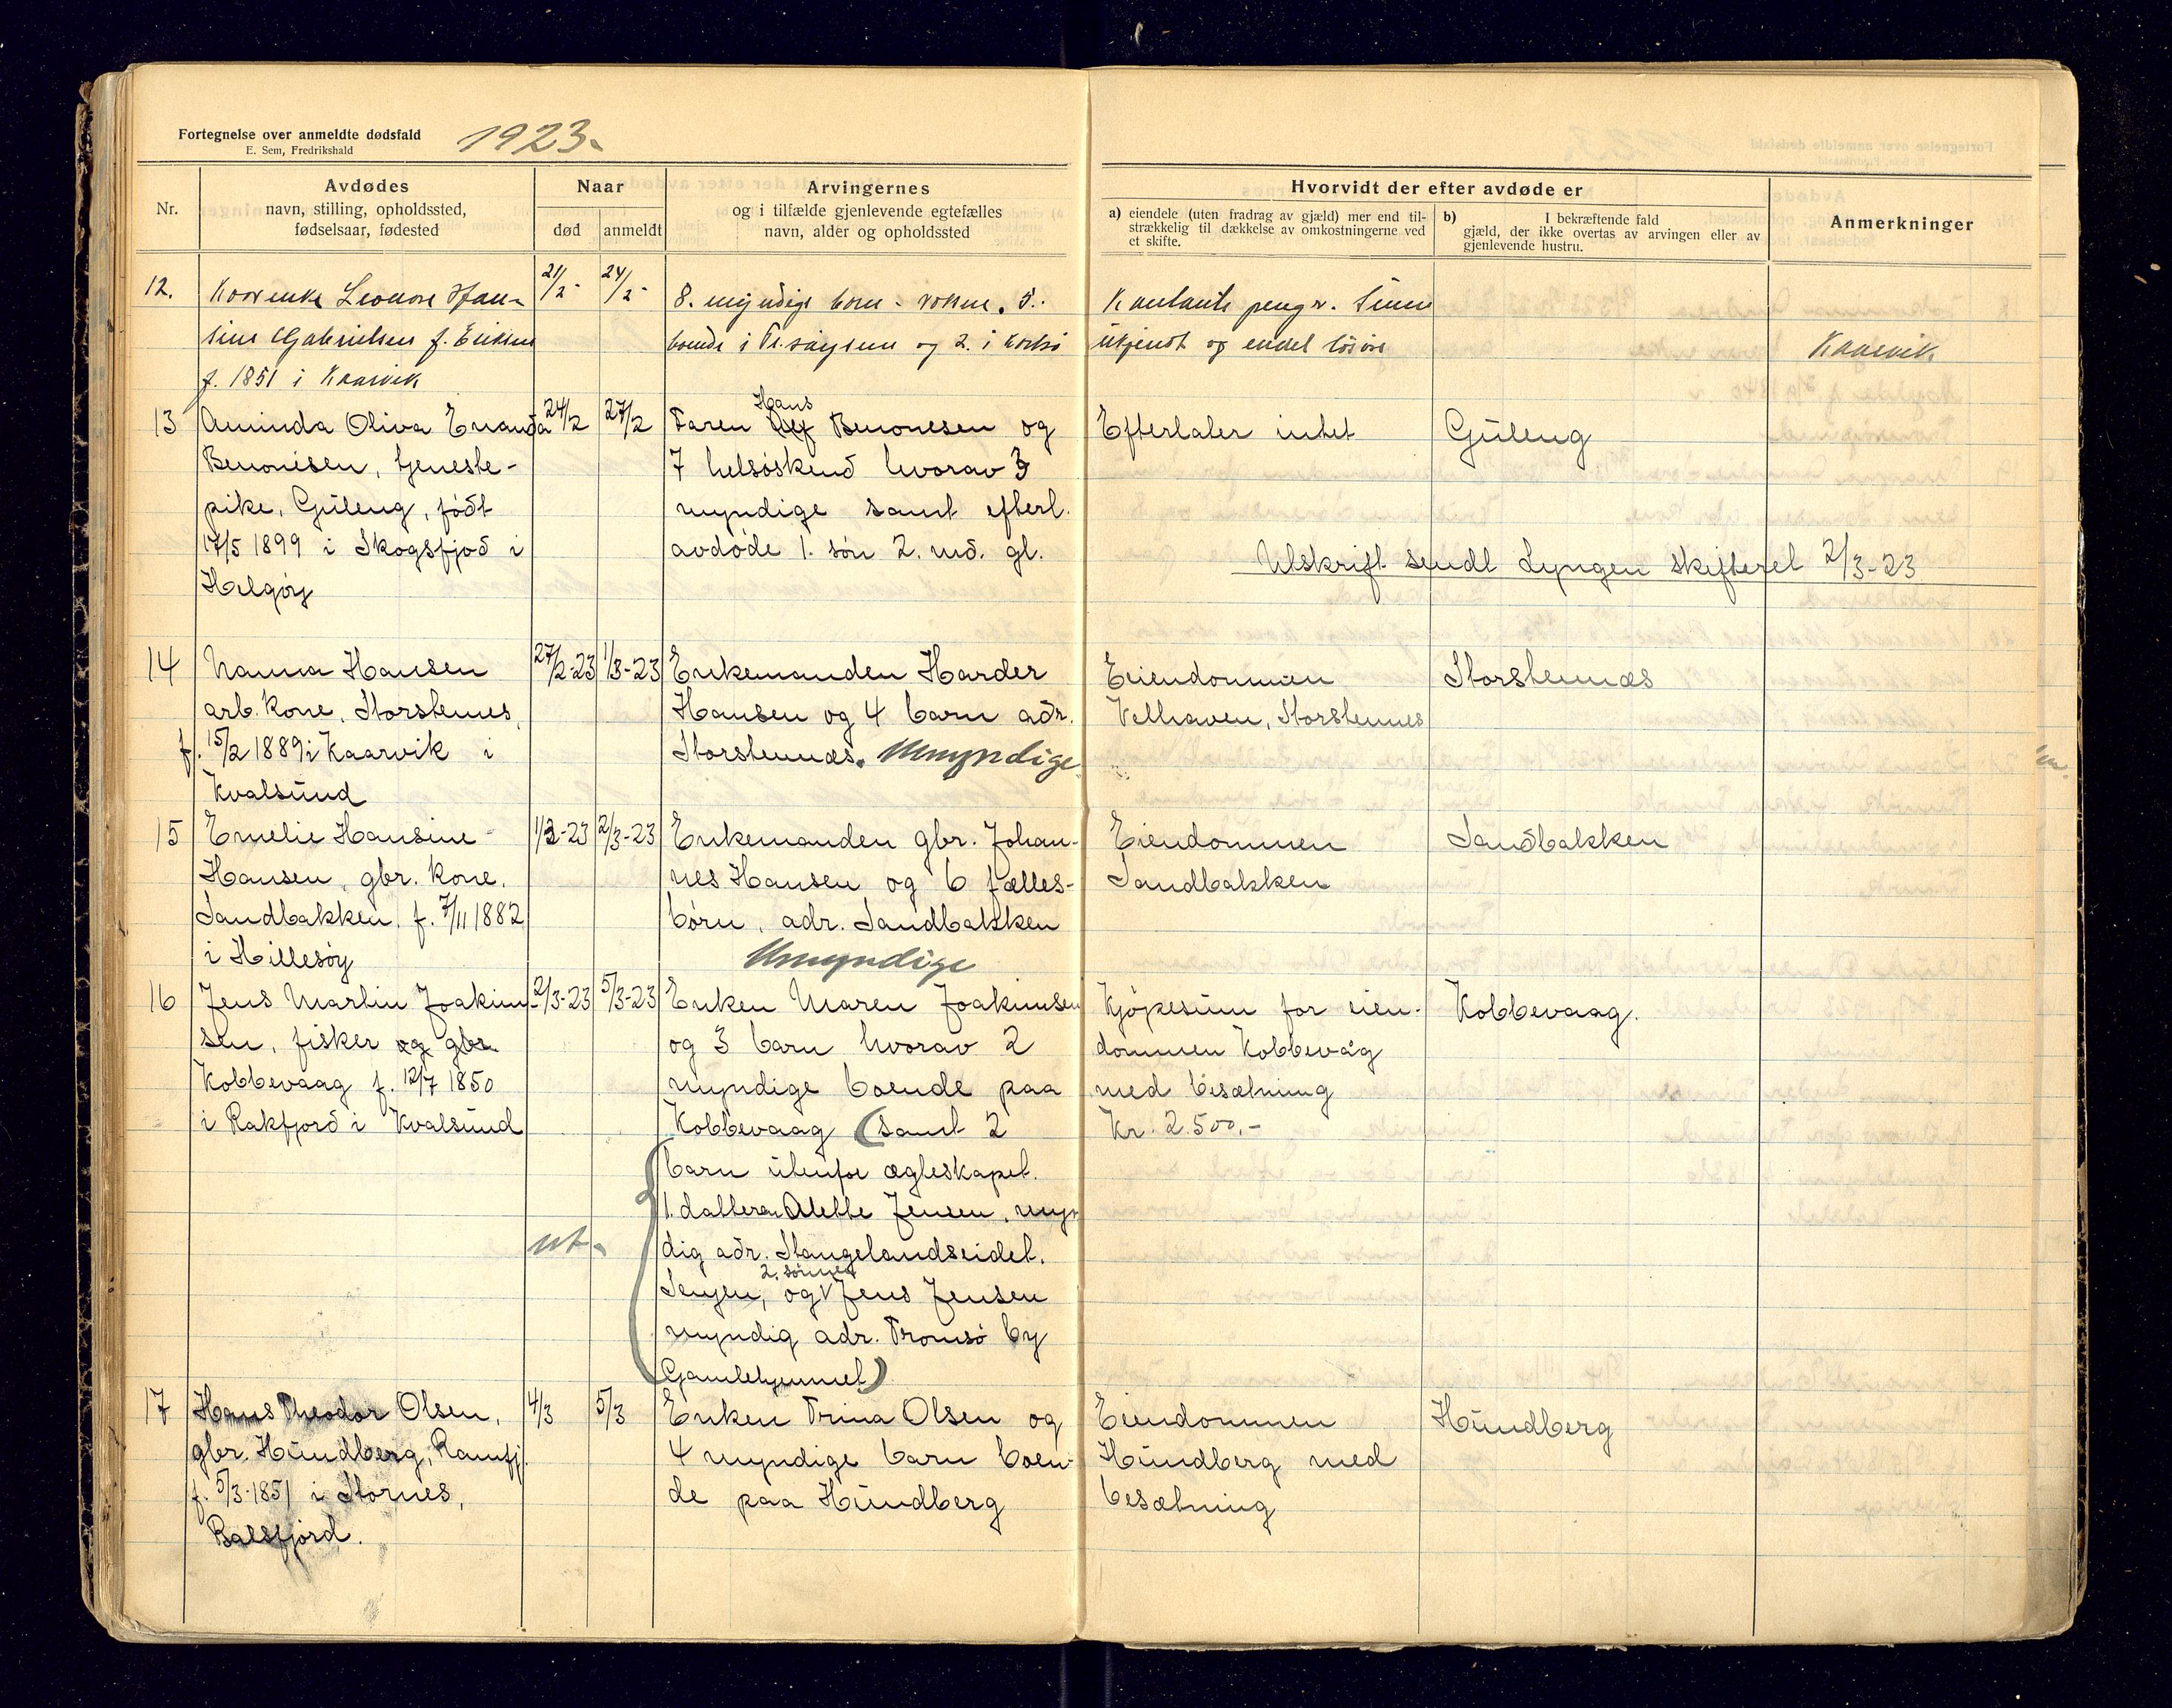 Fortegnelse over anmeldte dødsfald
E. Sem, Fredrikshald
1923.
Nr.
Avdødes
navn, stilling, opholdssted,
fødselsaar, fødested
Naar
død
anmeldt
Arvingernes
og i tilfælde gjenlevende egtefælles
navn, alder og opholdssted
Hvorvidt der efter avdøde er
a) eiendele (uten fradrag av gjæld) mer end til-
strækkelig til dækkelse av omkostningerne ved
et skifte.
b) I bekræftende fald
gjæld, der ikke overtas av arvingen eller av
gjenlevende hustru.
Anmerkninger
12.
Leonore Han-
sine Gabrielsen f. Eriksen
f. 1851 i Kaarvik
21/2-
24/2-
8. myndige born - voksne. 5.
boende i Tr.søysund og 2. i
Kontante penger.
ukjendt og endel løsøre
Kaarvik
13
Aminda Oliva Enanda
Benonisen, tjeneste-
pike, Guleng, født
17/5 1899 i Skogsfjod i
Helgøy
24/2
27/2
Faren Hans Benonesen og
7 helsøskend hvorav 3
myndige samt efterl.
avdøde 1. søn 2. md. gl.
Efterlater intet
Guleng
Utskrift sendt Lyngen skifteret 2/3-23
14
Nanna Hansen
arb. kone, Storstennes,
f. 15/2 1889 i Kaarvik i
Kvalsund
27/2-23
1/3-23
Enkemanden Harder
Hansen og 4 barn adr.
Storstennæs. Umyndige
Eiendommen
Velhaven, Storstennes
Storstennæs
15
Emelie Hansine
Hansen, gbr. kone,
Sandbakken, f. 7/11 1882
i Hillesøy
1/3-23
2/3-23
Enkemanden gbr. Johan-
nes Hansen og 6 fælles-
børn, adr. Sandbakken
Umyndige
Eiendommen
Sandbakken
Sandbakken
16
Jens Martin Joakim-
sen, fisker og gbr.
Kobbevaag f. 12/7 1850
i Rakfjord i Kvalsund
2/3-23
5/3-23
Enken Maren Joakimsen
og 3 barn hvorav 2
myndige boende paa
Kobbevaag (samt 2
barn utenfor ægteskapet.
1. datteren Alette Jensen, myn
dig adr. Stangelandseidet,
Senjen, og 2. sønnen Jens Jensen
myndig adr. Tromsø by
Gamlehjemmet)
ut-
Kjøpesum for eien-
dommen Kobbevåg
med besætning
Kr. 2.500.-
Kobbevaag.
17
Hans Theodor Olsen,
gbr. Hundberg, Ramfj.
f. 5/3-1851 i Stornes,
Balsfjord.
4/3
5/3
Enken Trina Olsen og
4 myndige barn boen-
de paa Hundberg
Eiendommen
Hundberg med
besætning
Hundberg